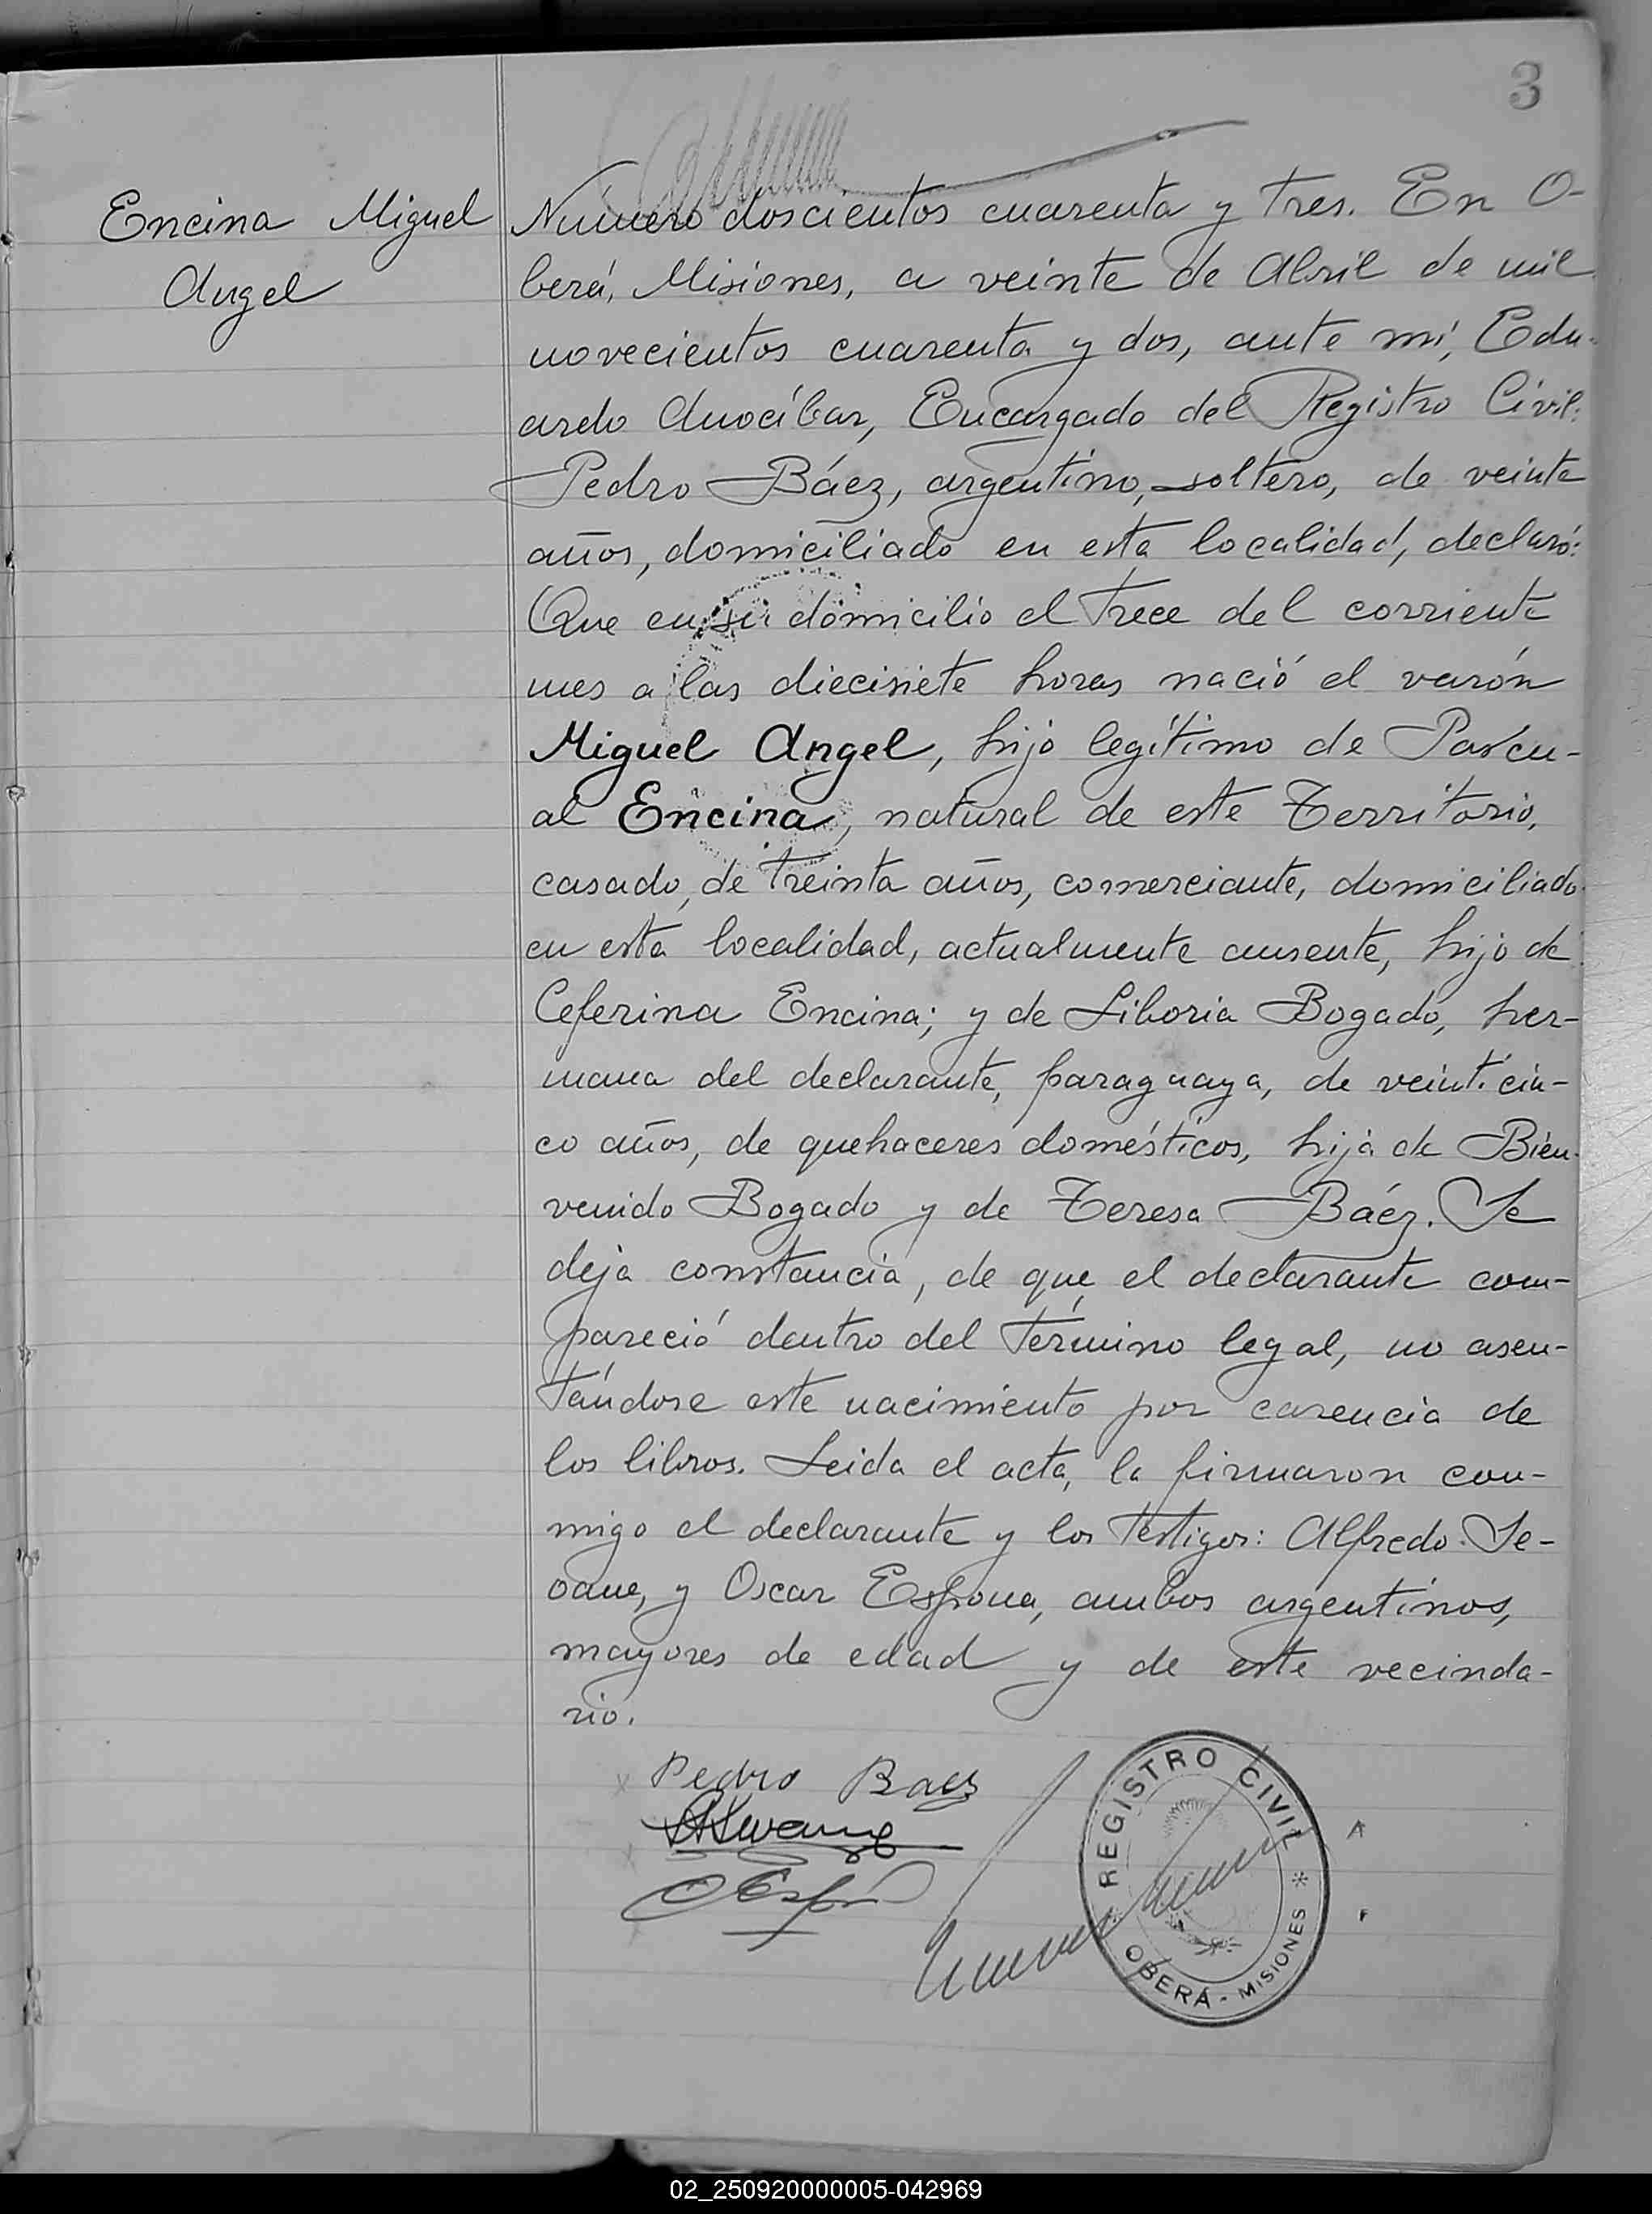 3
Encina Miguel
Angel
Número doscientos cuarenta y tres. En O-
berá, Misiones, a veinte de Abril de mil
novecientos cuarenta y dos, ante mí, Edu-
ardo Anocíbar, Encargado del Registro Civil:
Pedro Báez, argentino, soltero, de veinte
años, domiciliado en esta localidad, declaró:
Que en su domicilio el trece del corriente
mes a las diecisiete horas nació el varón
Miguel Angel, hijo legítimo de Pascu-
al Encina, natural de este Territorio,
casado, de treinta años, comerciante, domiciliado
en esta localidad, actualmente ausente, hijo de
Ceferina Encina; y de Liboria Bogado, her-
mana del declarante, paraguaya, de veinticin-
co años, de quehaceres domésticos, hija de Bien-
venido Bogado y de Teresa Báez. Se
deja constancia, de que el declarante com-
pareció dentro del término legal, no asen-
tándose este nacimiento por carencia de
los libros. Leida el acta, la firmaron con-
migo el declarante y los testigos: Alfredo Se-
oane, y Oscar Espona, ambos argentinos,
mayores de edad y de este vecinda-
rio.
Pedro Baez
REGISTRO CIVIL
OBERÁ - MISIONES
02_250920000005-042969